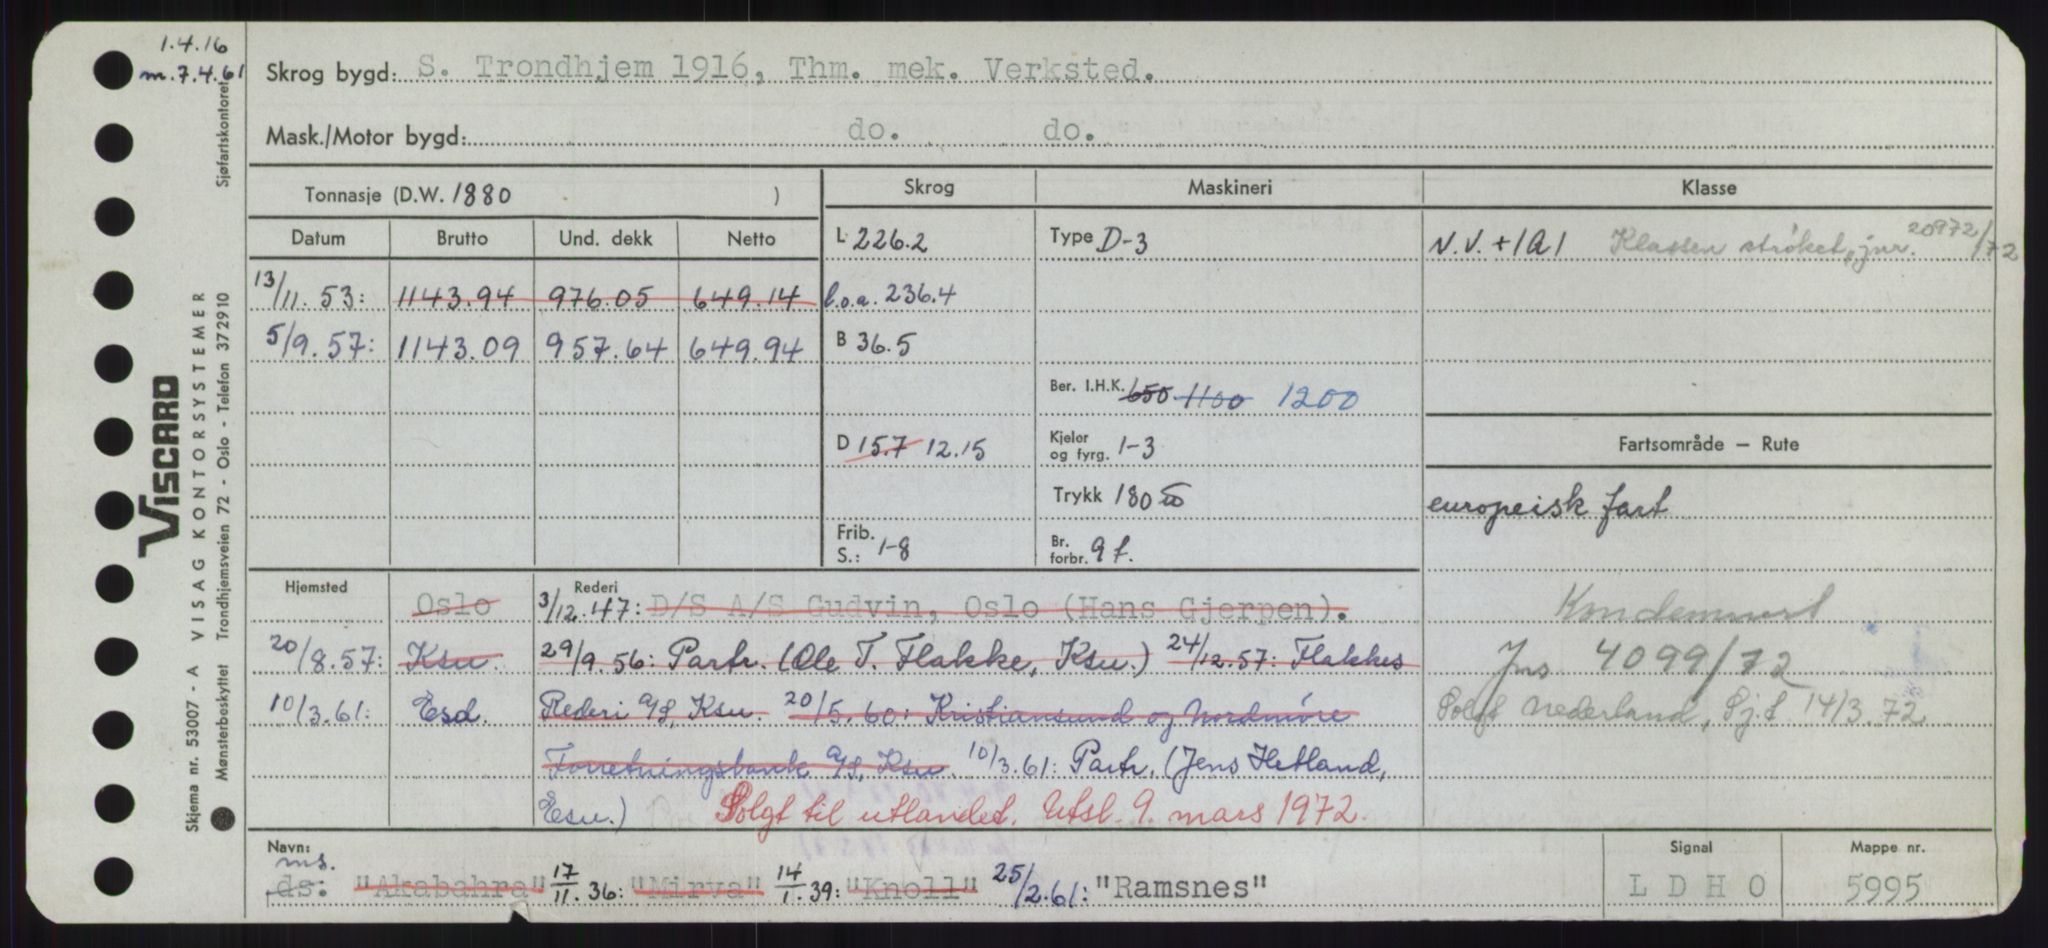 1.4.16
m.7.4.61
Skrog bygd: S. Trondhjem 1916, Thm. mek. Verksted.
Mask./Motor bygd: do. do.
Tonnasje (D.W. 1880 )
Skrog Maskineri Klasse
Datum Brutto Und. dekk Netto
L 226.2 Type D-3 N.V. +1A1 Klassen strøket, jnr. 20972/72
13/11.53: 1143.94 976.05 649.14 l.o.a. 236.4
5/9.57: 1143.09 957.64 649.94 B 36.5
Ber. I.H.K. 650 1100 1200
D 15.7 12.15 Kjeler og fyrg. 1-3 Fartsområde – Rute
Trykk 180 europeisk fart
Frib. S.: 1-8 Br. forbr. 9 t.
Hjemsted Rederi
Oslo 3/12.47: D/S A/S Gudvin, Oslo (Hans Gjerpen).
20/8.57: Ksu. 29/9.56: Partr. (Ole T. Flakke, Ksu.) 24/12.57: Flakkes
10/3.61: Esd. Rederi A/S, Ksu. 20/5.60: Kristiansund og Nordmøre
Forretningsbank A/S, Ksu. 10/3.61: Partr. (Jens Hetland,
Esu.) Solgt til utlandet. Utsl. 9. mars 1972.
Kondemnert
Jnr. 4099/72
Solgt Nederland, Sj.f 14/3.72
Navn: Signal Mappe nr.
ms.
ds: "Akabahra" 17/11.36: "Mirva" 14/1.39: "Knoll" 25/2.61: "Ramsnes" LDHO 5995
VISCARD
Skjema nr. 53007 - A VISAG KONTORSYSTEMER
Mønsterbeskyttet Trondhjemsveien 72 - Oslo - Telefon 372910 Sjøfartskontoret